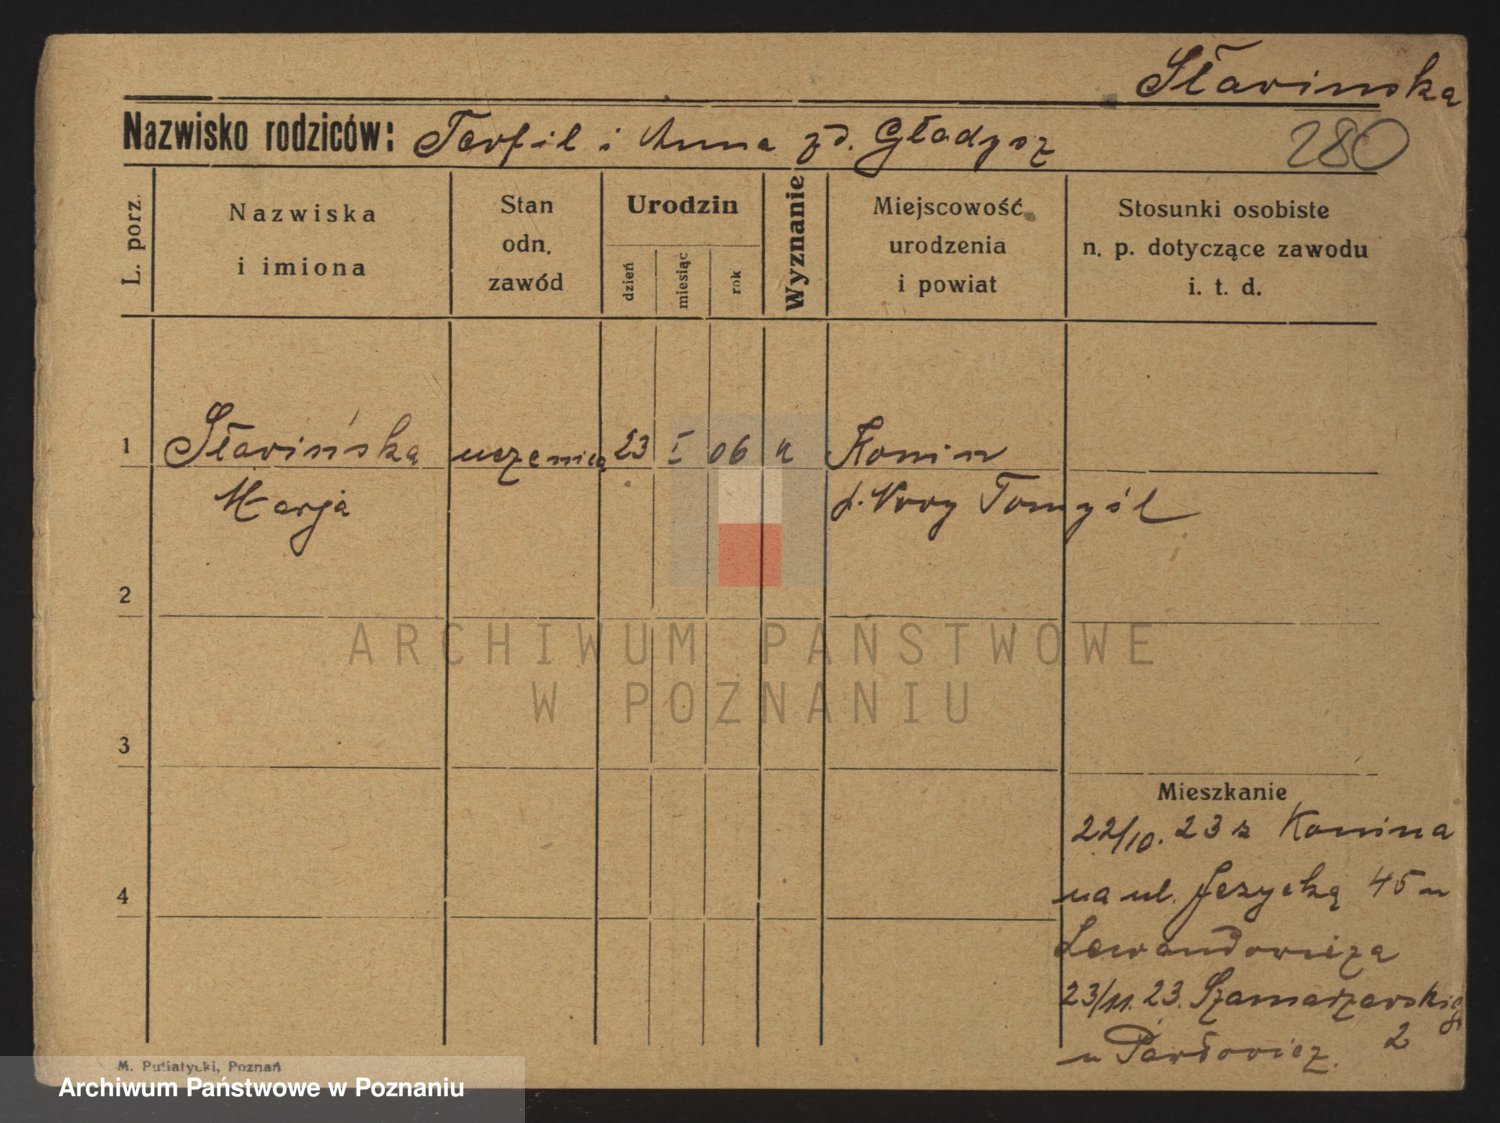 Sławinska
Nazwisko rodziców: Teofil i Anna zd. Gładysz
280
L. porz.
Nazwiska
i imiona
Stan
odn.
zawód
Urodzin
dzień
miesiąc
rok
Wyznanie
Miejscowość
urodzenia
i powiat
Stosunki osobiste
n. p. dotyczące zawodu
i. t. d.
1 Sławińska uczenica 23 I 06 k Konin
Marja p. Nowy Tomyśl
2
3
4
Mieszkanie
22/10. 23 z Konina
na ul. Jezycką 45 u
Lewandowicza
23/11. 23. Szamarzewskieg
2
u Pawłowicz.
M. Putiatycki, Poznań
ARCHIWUM PAŃSTWOWE
W POZNANIU
Archiwum Państwowe w Poznaniu